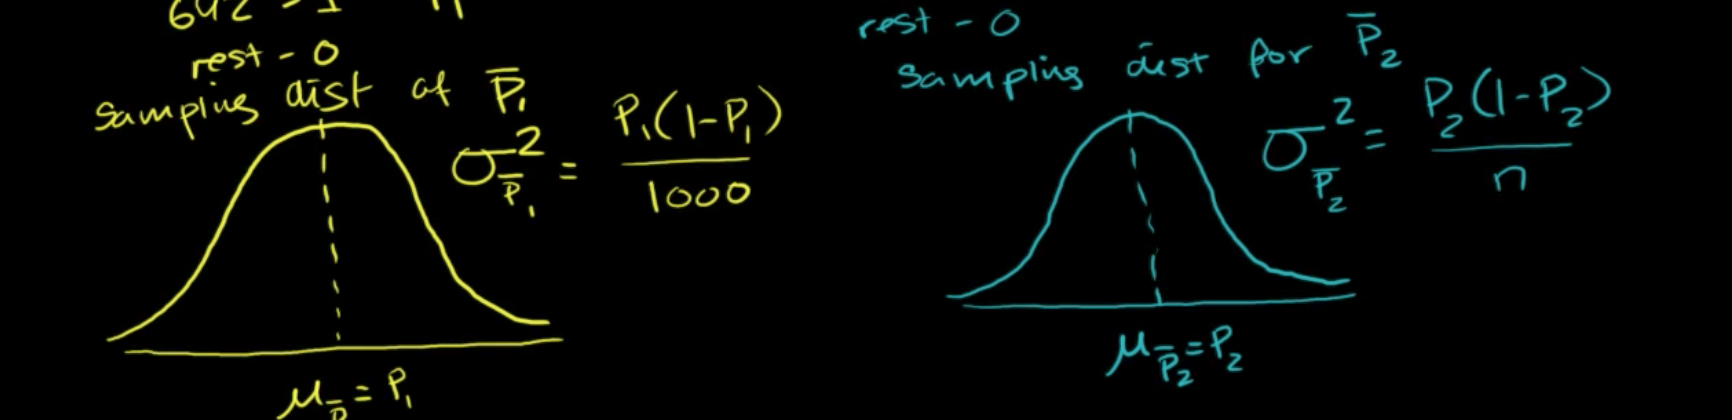 642 - 1
rest - 0
sampling dist of P̄₁
σ²_P̄₁ = P₁(1-P₁) / 1000
μ_P̄ = P₁
rest - 0
sampling dist for P̄₂
σ²_P̄₂ = P₂(1-P₂) / n
μ_P̄₂ = P₂